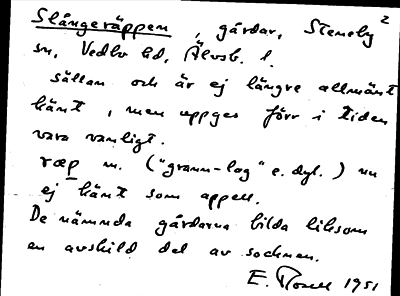 Slångeräppen, gårdar, Steneby 2
sn, Vedbo hd, Älvsb. l.
sällan och är ej längre allmänt
känt, men uppges förr i tiden
vara vanligt.
ræp m. ("grann-lag" e. dyl.) nu
ej känt som appell.
De nämnda gårdarna bilda liksom
en avskild del av socknen.
E. 1951